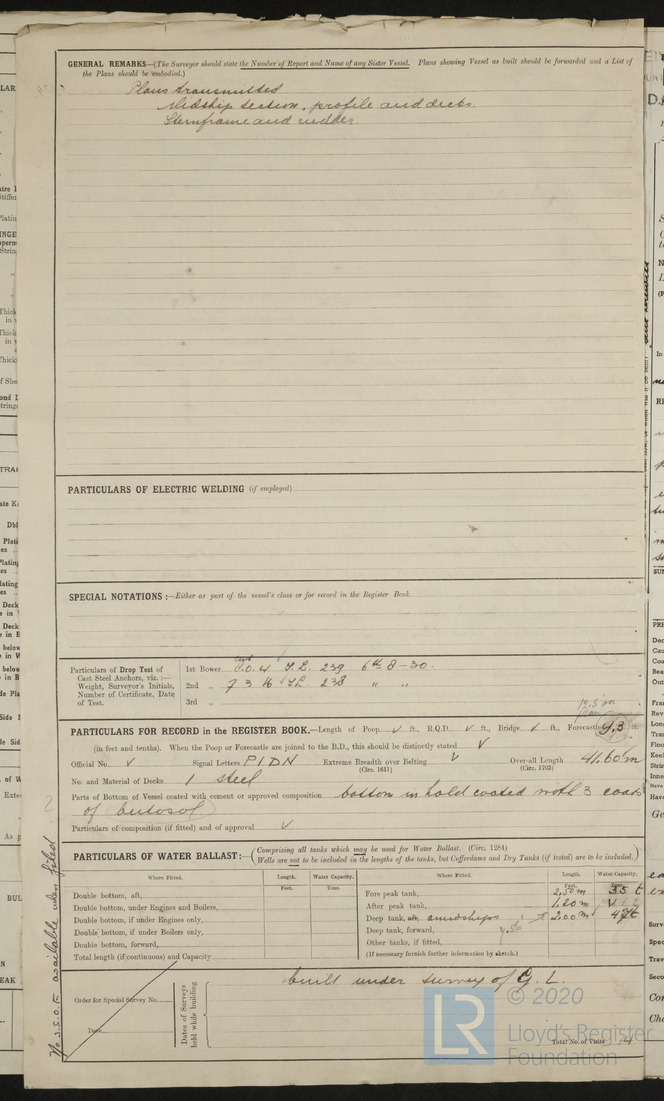 GENERAL REMARKS—(The Surveyor should state the Number of Report and Name of any Sister Vessel. Plans showing Vessel as built should be forwarded and a List of
the Plans should be embodied.)
Plans transmitted
Midship section, profile and decks
Sternframe and rudder.
PARTICULARS OF ELECTRIC WELDING (if employed)
SPECIAL NOTATIONS:—Either as part of the vessel's class or for record in the Register Book
Particulars of Drop Test of
Cast Steel Anchors, viz.:—
Weight, Surveyor's Initials,
Number of Certificate, Date
of Test.
1st Bower 239 6th 8-30.
2nd „ 7 3 16 238 „ „
3rd „
PARTICULARS FOR RECORD in the REGISTER BOOK.—Length of Poop ✓ ft., R.Q.D. ✓ ft., Bridge ✓ ft., Forecastle 9,3 ft.
(in feet and tenths). When the Poop or Forecastle are joined to the B.D., this should be distinctly stated ✓
Official No. ✓ Signal Letters PIDN Extreme Breadth over Belting ✓ Over-all Length 41.60 m
(Circ. 1611) (Circ. 1703)
No. and Material of Decks 1 steel
Parts of Bottom of Vessel coated with cement or approved composition bottom in hold coated with 3 coats
of
Particulars of composition (if fitted) and of approval ✓
PARTICULARS OF WATER BALLAST:—(Comprising all tanks which may be used for Water Ballast. (Circ. 1284)
Wells are not to be included in the lengths of the tanks, but Cofferdams and Dry Tanks (if tested) are to be included.)
Where Fitted. Length. Water Capacity. Where Fitted. Length. Water Capacity.
Feet. Tons.
Double bottom, aft, Fore peak tank, 2,50 m 35 t
Double bottom, under Engines and Boilers, After peak tank, 1.20 m
Double bottom, if under Engines only, Deep tank, aft, amidships 2.00 m 47t
Double bottom, if under Boilers only, Deep tank, forward,
Double bottom, forward, Other tanks, if fitted,
Total length (if continuous) and Capacity (If necessary furnish further information by sketch.)
built under survey of G. L.
Order for Special Survey No.
Date
Dates of Surveys
held while building
Total No. of Visits
No S.S.O.E available when filed
LR
© 2020
Lloyd's Register
Foundation